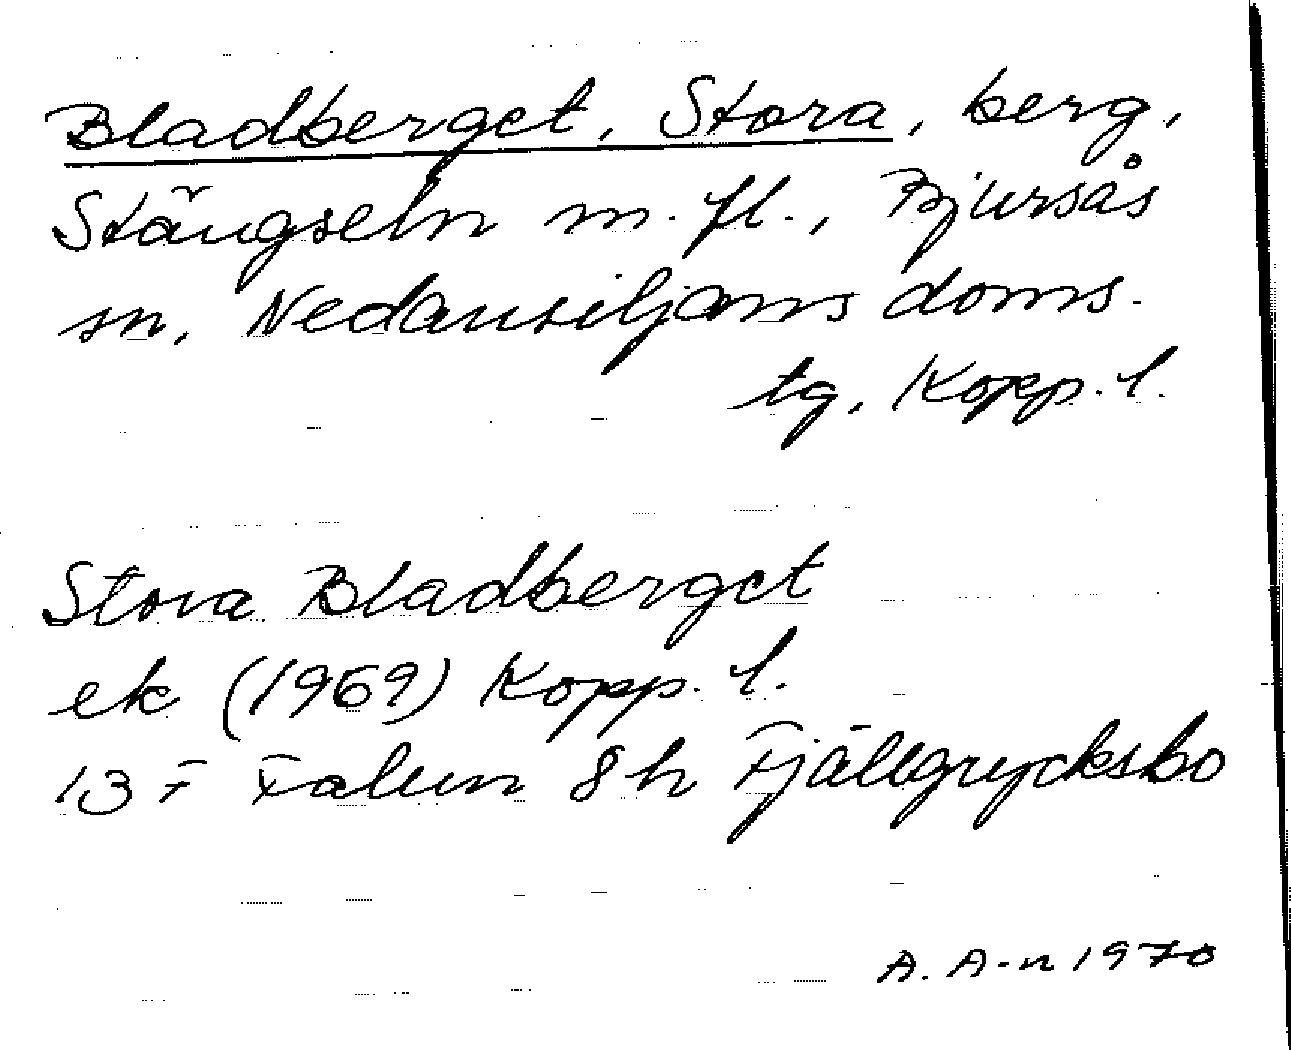 Bladberget, Stora, berg,
Stängseln m. fl., Bjursås
sn, Nedansiljans doms.
tg, Kopp. l.
Stora Bladberget
ek (1969) Kopp. l.
13 F Falun 8 h Fjällgrycksbo
A. A-n 1970